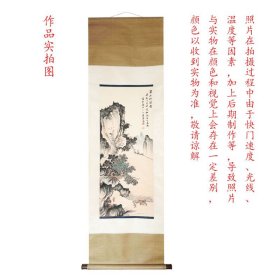 照片在拍摄过程中由于快门速度、光线、
温度等因素，加上后期制作等，导致照片
与实物在颜色和视觉上会存在一定差别，
颜色以收到实物为准，敬请谅解
作品实拍图